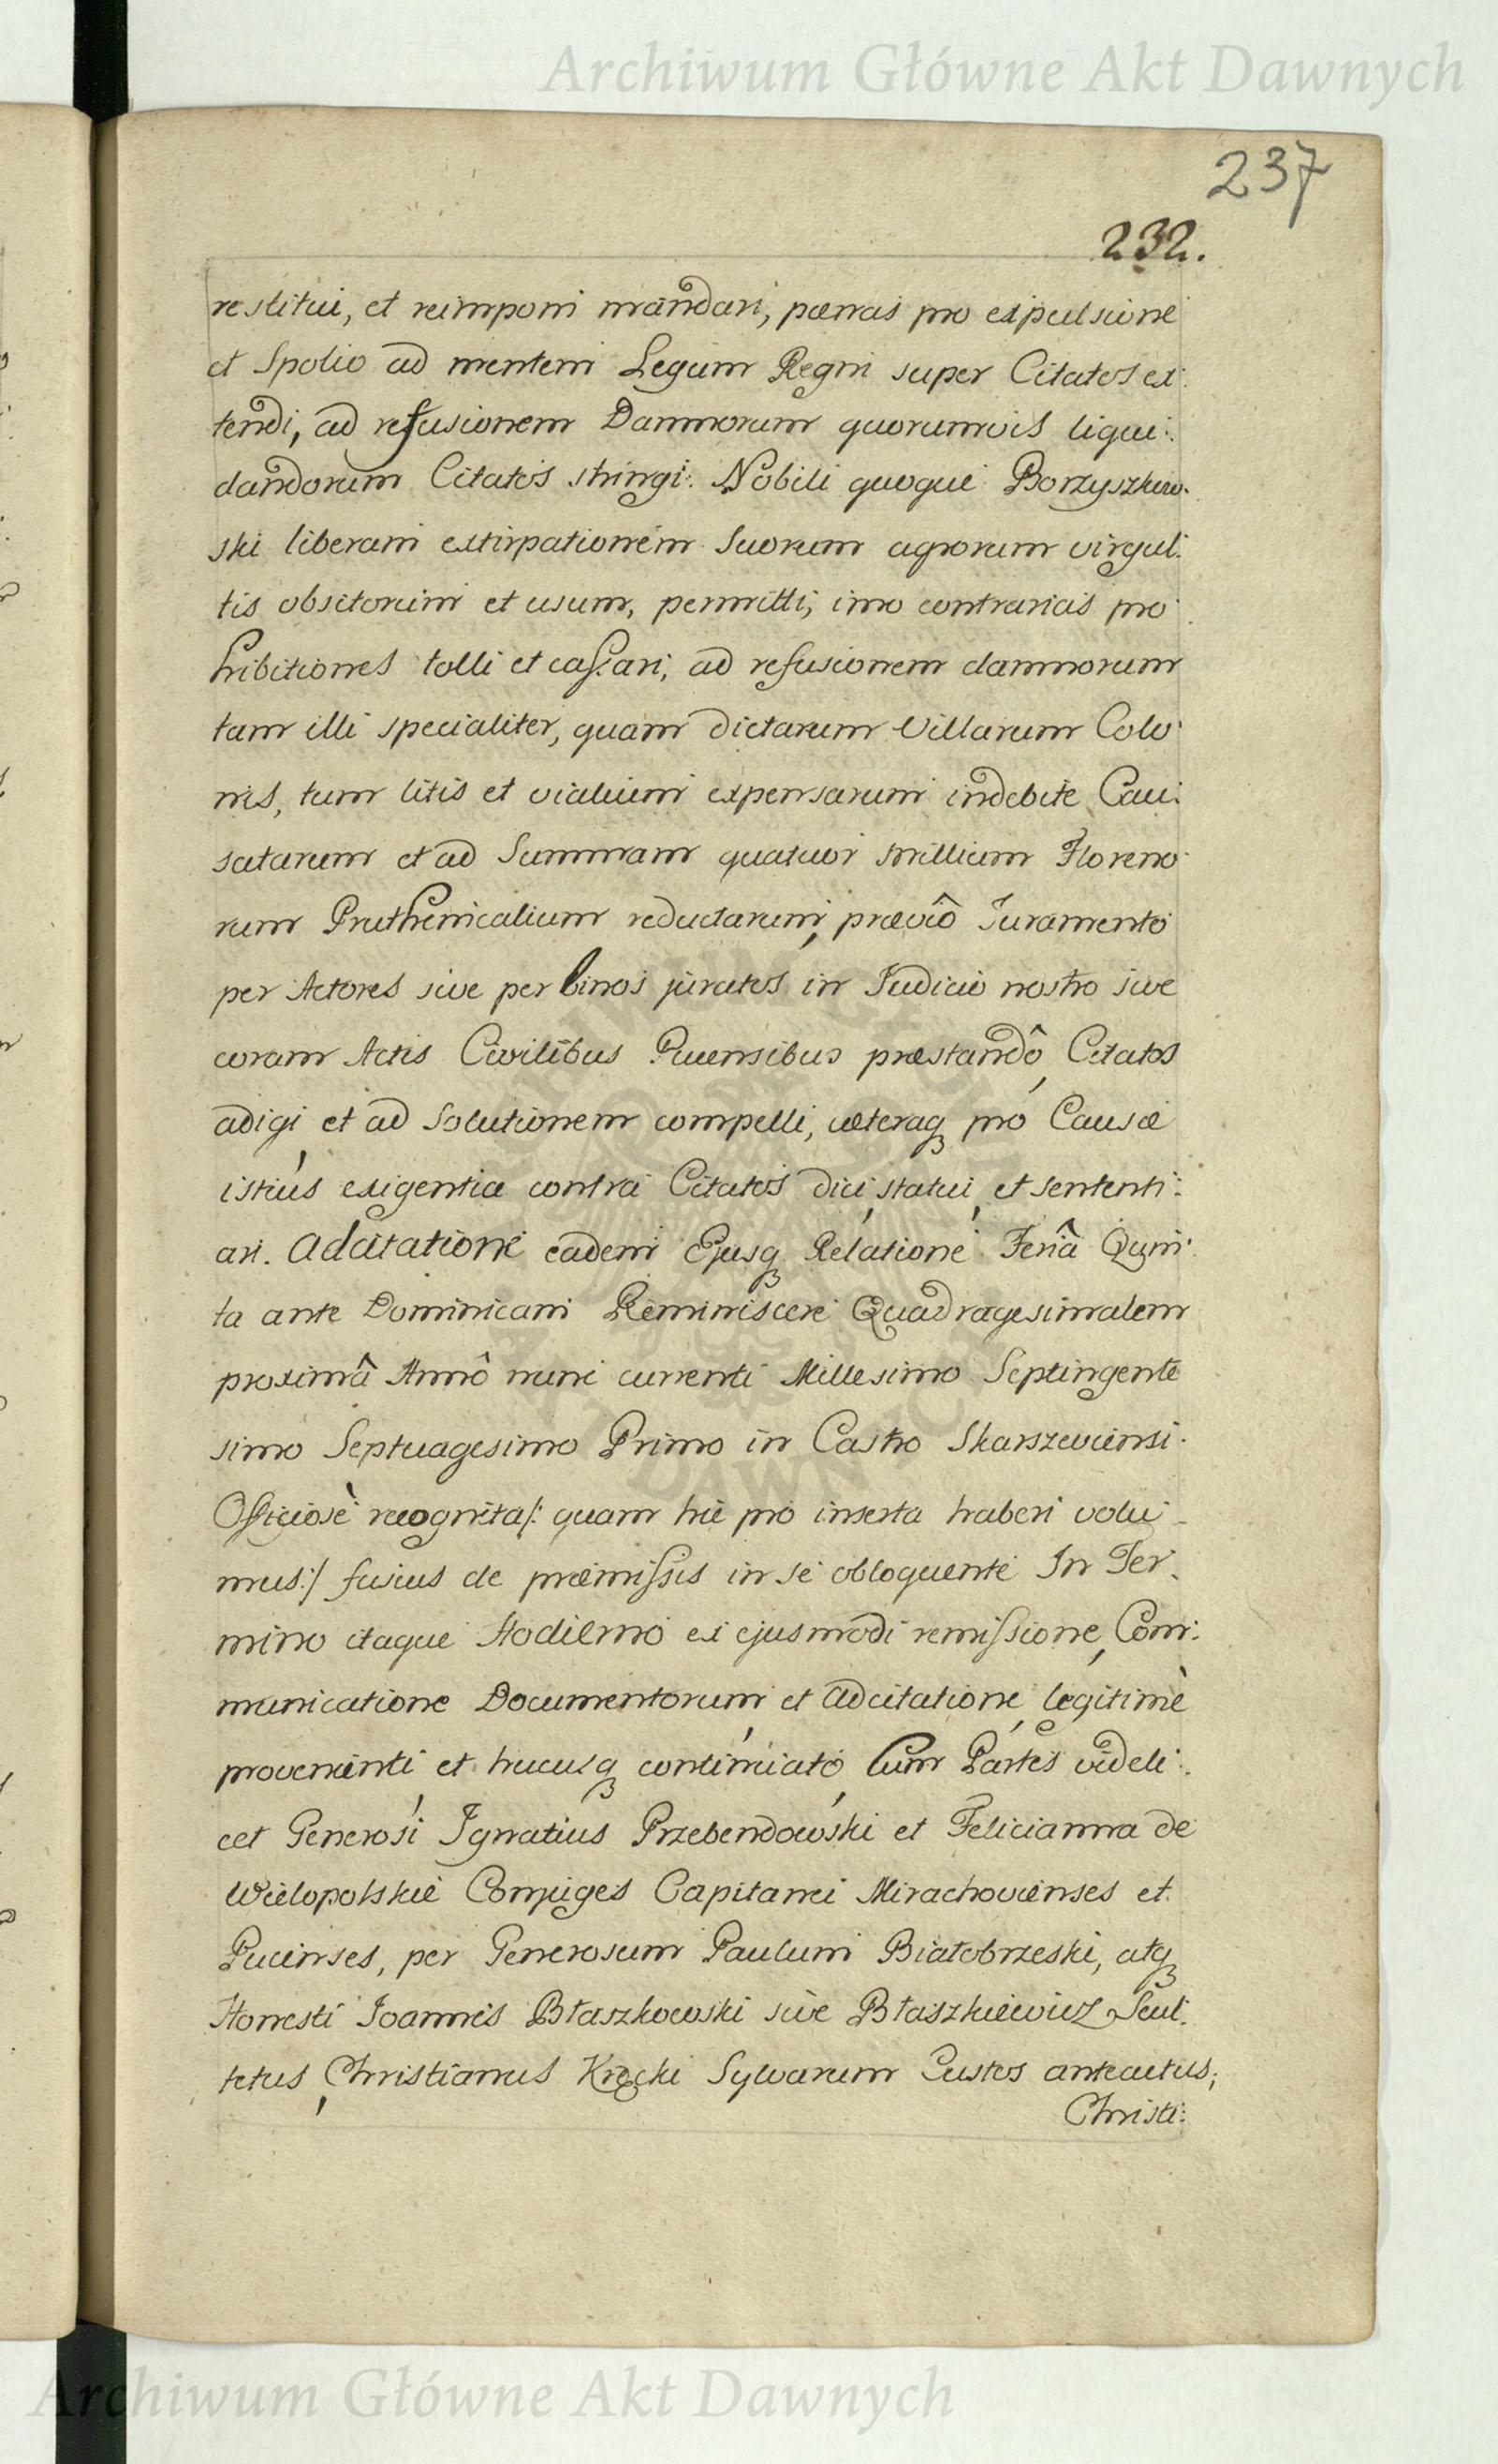 Archiwum Główne Akt Dawnych
237
232.
restitui, et reimponi mandari, pœnas pro expulsione
et Spolio ad mentem Legum Regni super Citatos ex:
tendi, ad refusionem Damnorum quorumvis liqui:
dandorum Citatos stringi. Nobili quoque Borzyszkow:
ski liberam extirpationem Suorum agrorum virgul:
tis obsitorum et usum, permitti, imo contrarias pro:
hibitiones tolli et cassari, ad refusionem damnorum
tam illi specialiter, quam dictarum Villarum Colo:
nis, tum litis et vialium expensarum indebite Cau:
satarum et ad Summam quatuor Millium Floreno:
rum Pruthenicalium reductarum, prævió Juramento
per Actores sive per binos juratos in Judicio nostro sive
coram Actis Civilibus Pucensibus præstandô, Citatos
adigi, et ad Solutionem compelli, cæteraq pro Causæ
istius exigentia contra Citatos dici, statui, et sententi:
ari. Adcitatione eadem Ejusq Relatione Feriâ Quin:
ta ante Dominicam Reminiscere Quadragesimalem
proximâ Annô nunc currenti Millesimo Septingente
simo Septuagesimo Primo in Castro Skarszeviensi.
Officiosè recognita/: quam hic pro inserta haberi volu -
mus:/ fusius de præmissis in se obloquente In Ter:
mino itaque Hodierno ex ejusmodi remissione, Com:
municatione Documentorum, et adcitatione, legitimè
provenienti, et hucusq continuato, Cum Partes videli:
cet Generosi Ignatius Przebendowski et Felicianna de
Wielopolskie Conjuges Capitanei Mirachovienses et
Pucenses, per Generosum Paulum Białobrzeski, atq
Honesti Joannes Błaszkowski sive Błaszkiewicz Scul:
tetus, Christianus Kręcki Sylvarum Custos anteactus,
Christi:
Archiwum Główne Akt Dawnych